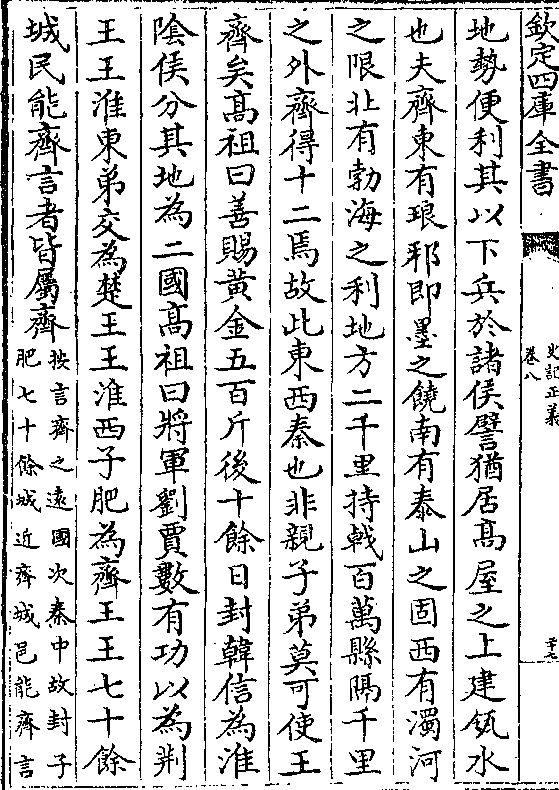 欽定四庫全書
史記正義
卷八
地勢便利其以下兵於諸侯譬猶居高屋之上建瓴水
也夫齊東有琅邪即墨之饒南有泰山之固西有濁河
之限北有勃海之利地方二千里持戟百萬縣隔千里
之外齊得十二焉故此東西秦也非親子弟莫可使王
齊矣高祖曰善賜黃金五百斤後十餘日封韓信為淮
陰侯分其地為二國高祖曰將軍劉賈數有功以為荆
王王淮東弟交為楚王王淮西子肥為齊王王七十餘
城民能齊言者皆屬齊
按言齊之遠國次秦中故封子
肥七十餘城近齊城邑能齊言